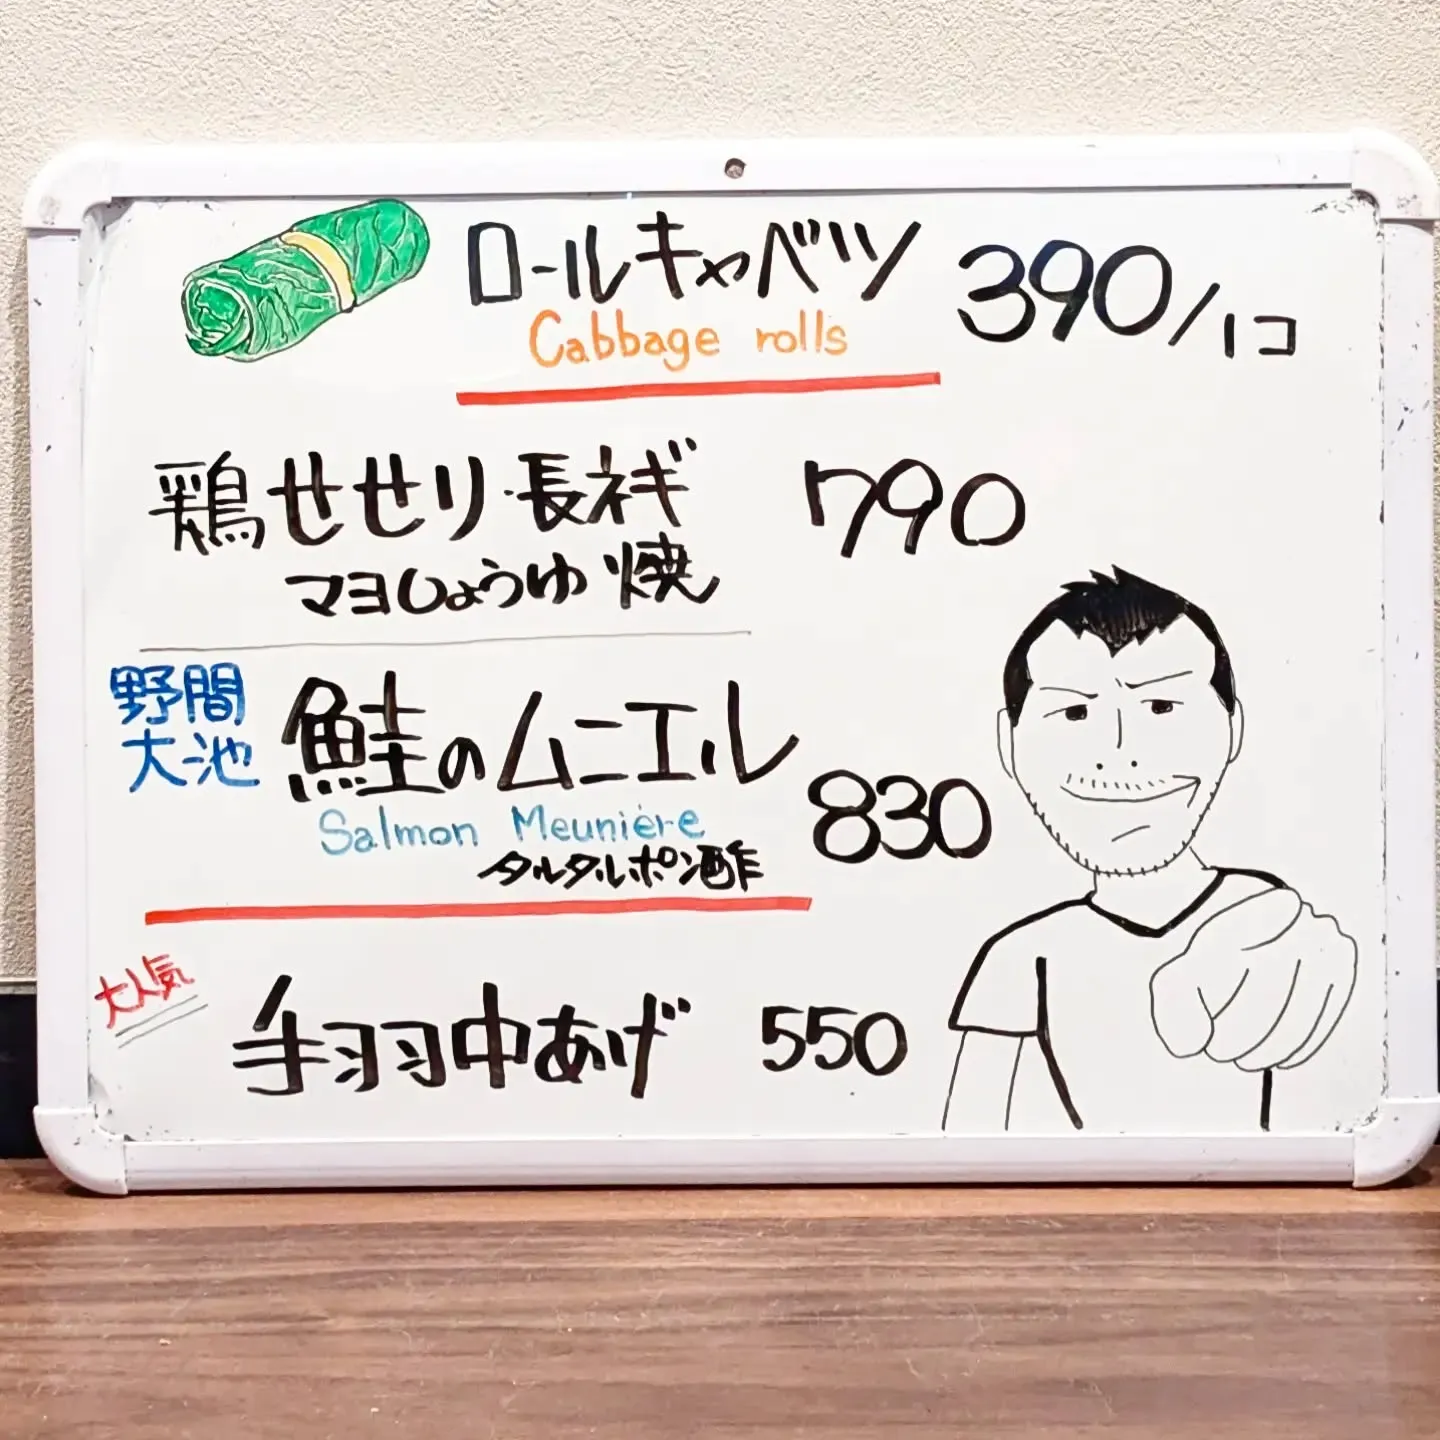 ロールキャベツ 390/1コ
Cabbage rolls
鶏せせり・長ネギ 790
マヨしょうゆ焼
野間
大池
鮭のムニエル 830
Salmon Meunière
タルタルポン酢
大人気
手羽中あげ 550